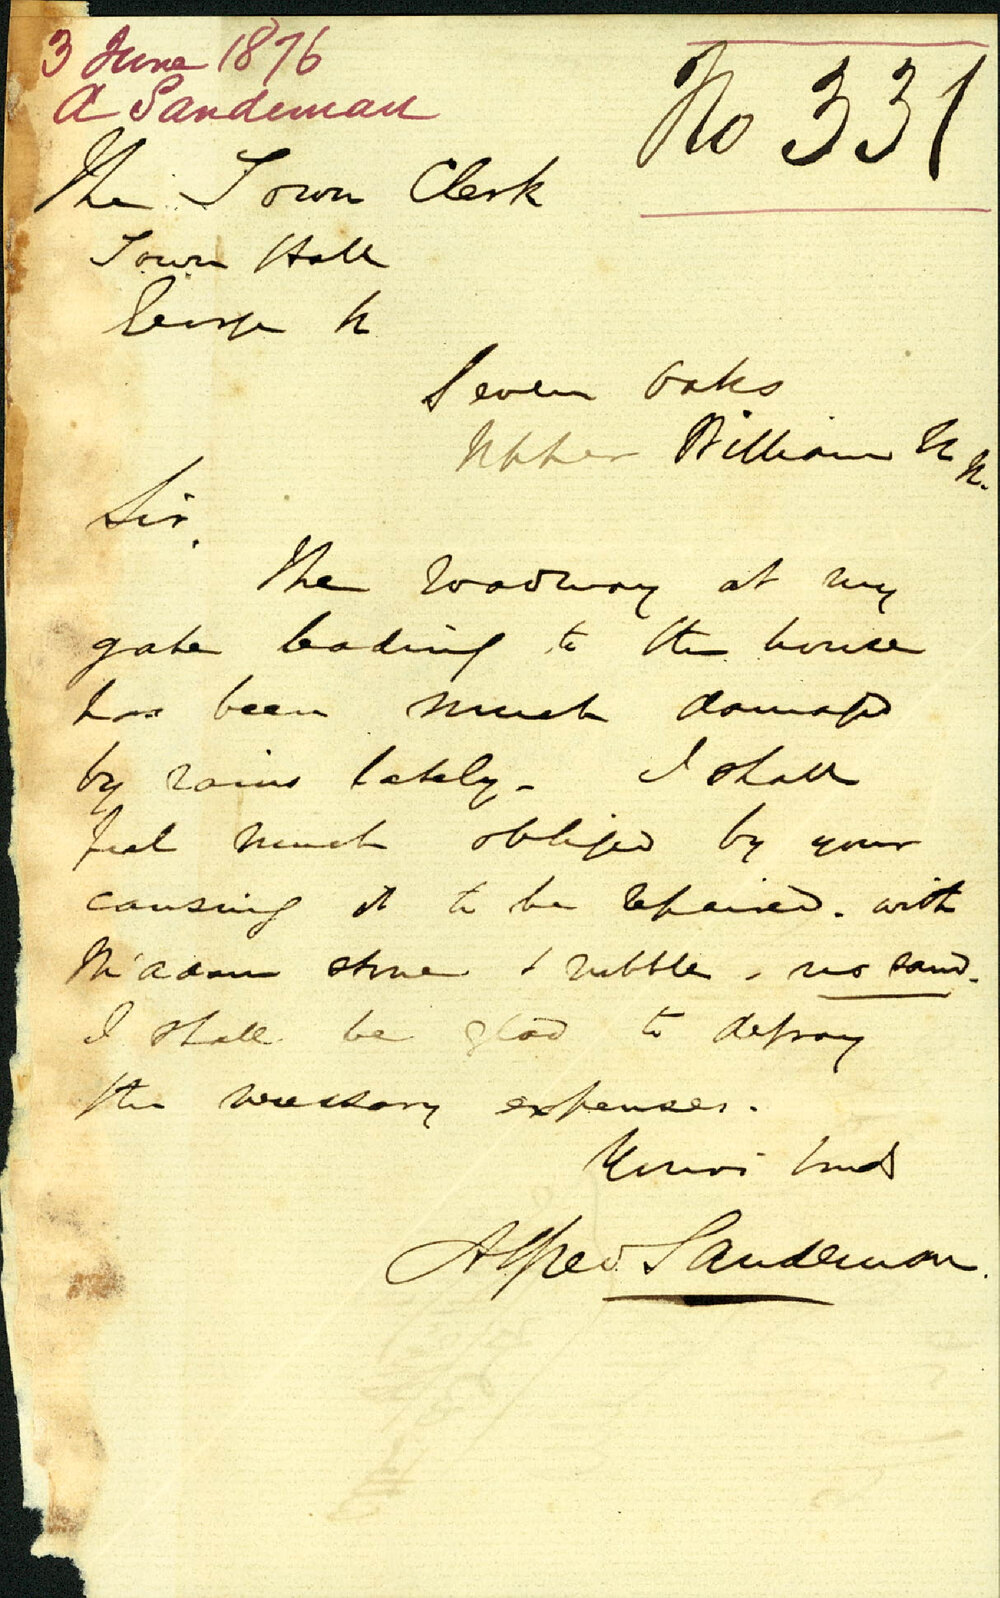 3 June 1876
A Sandeman
No 331
The Town Clerk
Town Hall
George St
Seven Oaks
Upper William St N.
Sir,
The roadway at my
gate leading to the house
has been much damaged
by rains lately. I shall
feel much obliged by your
causing it to be repaired. with
McAdam stone & rubble, no sand.
I shall be glad to defray
the necessary expenses.
Yours
Alfred Sandeman.